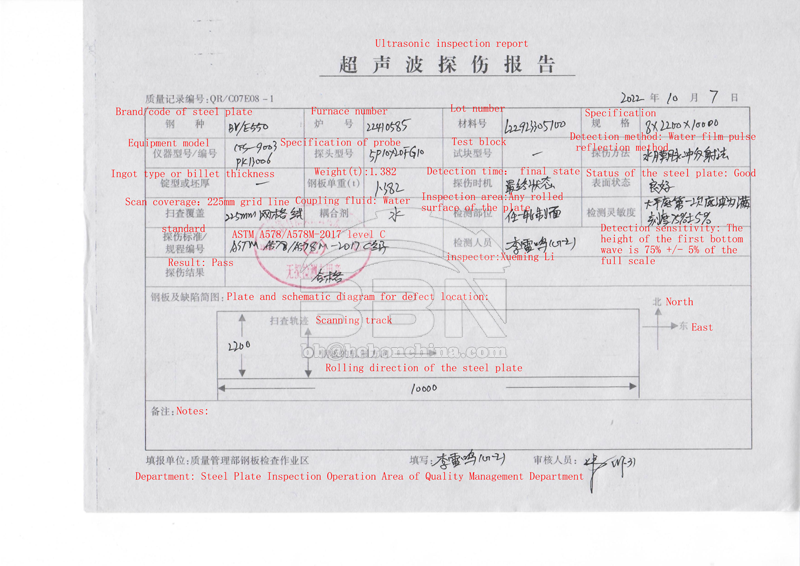 Ultrasonic inspection report
超声波探伤报告
质量记录编号:QR/C07E08-1 2022 年 10 月 7 日
Brand/code of steel plate Furnace number Lot number Specification
钢 种 炉 号 22410585 材料号 规 格 8×2200×10000
Equipment model Specification of probe Test block Detection method: Water film pulse reflection method
仪器型号/编号 CTS-9003 PK11006 探头型号 5P10×20FG10 试块型号 — 探伤方法
Ingot type or billet thickness Weight(t):1.382 Detection time: final state Status of the steel plate: Good
锭型或坯厚 — 钢板单重(t) 1.382 探伤时机 最终状态 表面状态 良好
Scan coverage: 225mm grid line Coupling fluid: Water Inspection area:Any rolled surface of the plate
扫查覆盖 225mm 网格线 耦合剂 水 检测部位 任一轧制面 检测灵敏度
standard ASTM A578/A578M-2017 level C
探伤标准/规程编号 ASTM A578/A578M-2017 C级 检测人员 李雪鸣(UT-2)
inspector:Xueming Li
Detection sensitivity: The
height of the first bottom
wave is 75% +/- 5% of the
full scale
Result: Pass
探伤结果 合格
钢板及缺陷简图: Plate and schematic diagram for defect location:
北 North
东 East
扫查轨迹 Scanning track
2200
BBN
bt@bebonchina.com
Rolling direction of the steel plate
10000
备注: Notes:
填报单位:质量管理部钢板检查作业区 填写: 李雪鸣(UT-2) 审核人员:
Department: Steel Plate Inspection Operation Area of Quality Management Department